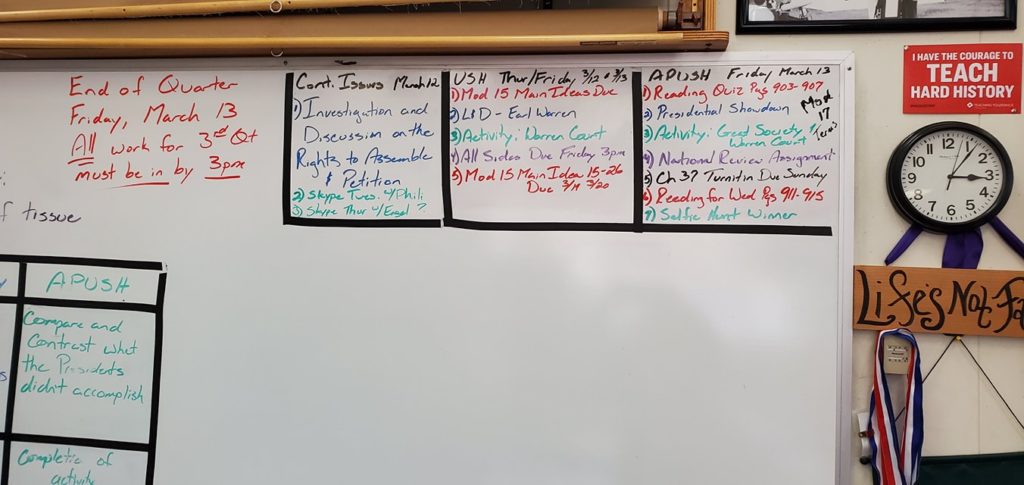 End of Quarter
Friday, March 13
All work for 3rd Qt
must be in by 3pm
of tissue
Cont. Issues March 12
1) Investigation and
Discussion on the
Rights to Assemble
& Petition
2) Skype Tues. w/Phili
3) Skype Thur w/Engel ?
USH Thur/Friday 3/12 & 3/13
1) Mod 15 Main Ideas Due
2) LID - Earl Warren
3) Activity: Warren Court
4) All Sides Due Friday 3pm
5) Mod 15 Main Idea 15-26
Due 3/19 3/20
APUSH Friday March 13
1) Reading Quiz Pgs 903-907
2) Presidential Showdown
3) Activity: Great Society,
Warren Court
4) National Review Assignment
5) Ch 37 Turnitin Due Sunday
6) Reading for Wed Pgs 911-915
7) Selfie Hunt Winner
Mod
17
APUSH
Compare and
Contrast what
the Presidents
didn't accomplish
Completion of
activity
I HAVE THE COURAGE TO
TEACH
HARD HISTORY
TEACHING TOLERANCE
12
1
2
3
4
5
6
7
8
9
10
11
Life's Not Fa